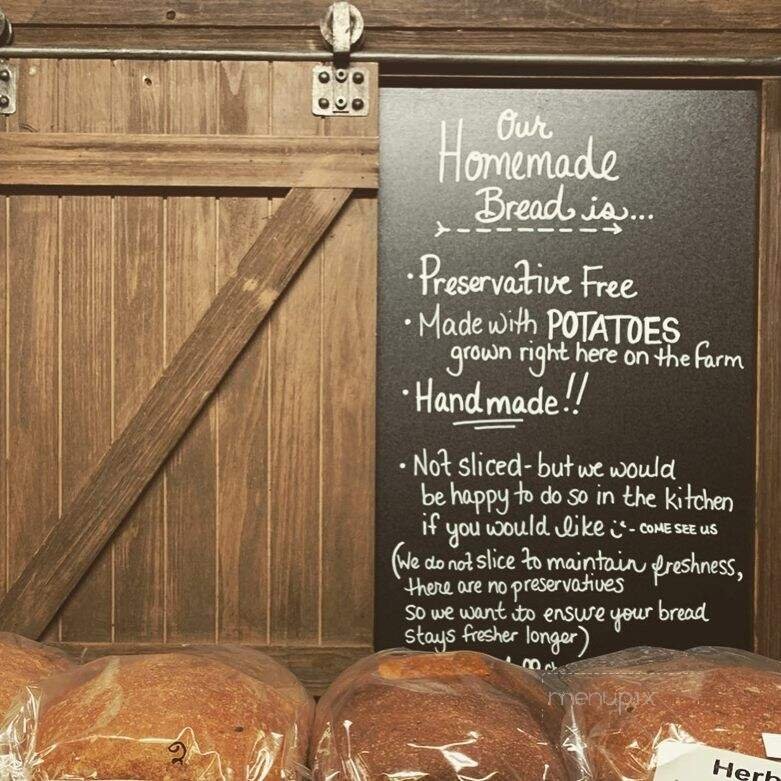 Our
Homemade
Bread is...
• Preservative Free
• Made with POTATOES
grown right here on the farm
• Handmade!!
• Not sliced - but we would
be happy to do so in the kitchen
if you would like - COME SEE US
(We do not slice to maintain freshness,
there are no preservatives
so we want to ensure your bread
stays fresher longer)
menupix
2
Herb